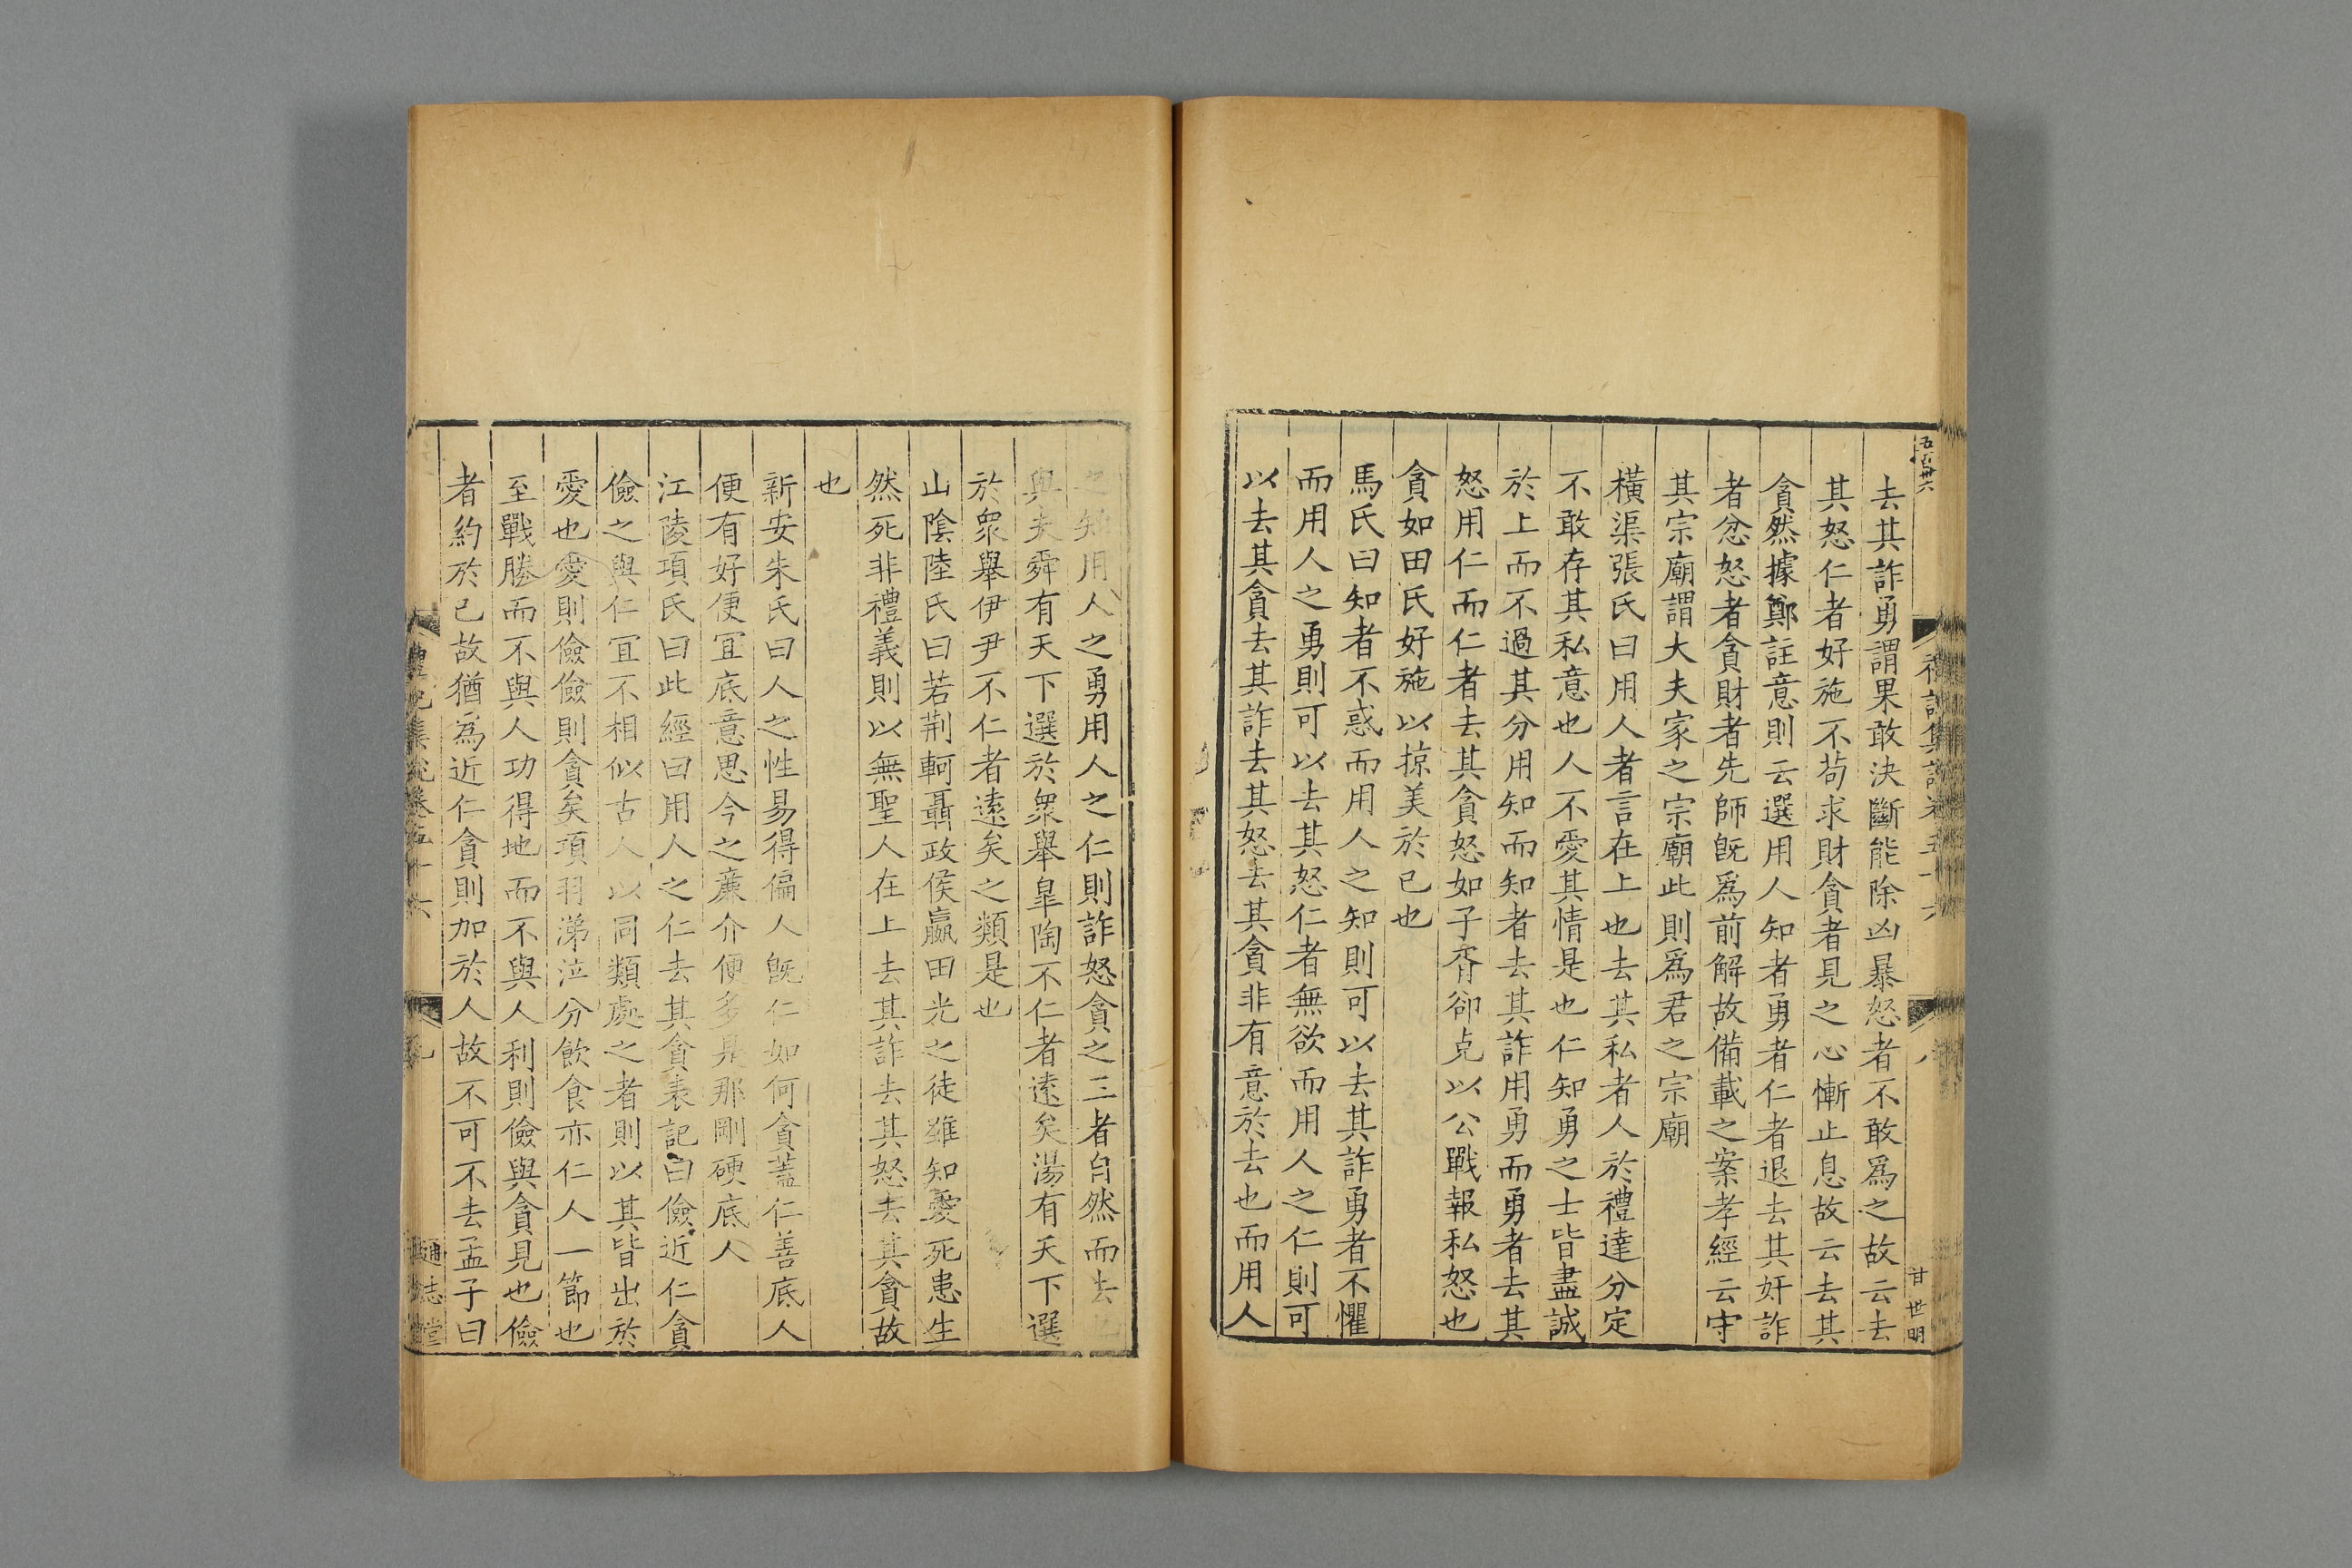 五百卅六
禮記集說卷五十六
八
甘世明
去其詐勇謂果敢決斷能除凶暴怒者不敢爲之故云去
其怒仁者好施不苟求財貪者見之心慚止息故云去其
貪然據鄭註意則云選用人知者勇者仁者退去其奸詐
者忿怒者貪財者先師旣爲前解故備載之案孝經云守
其宗廟謂大夫家之宗廟此則爲君之宗廟
橫渠張氏曰用人者言在上也去其私者人於禮達分定
不敢存其私意也人不愛其情是也仁知勇之士皆盡誠
於上而不過其分用知而知者去其詐用勇而勇者去其
怒用仁而仁者去其貪怒如子胥郤克以公戰報私怒也
貪如田氏好施以掠美於已也
馬氏曰知者不惑而用人之知則可以去其詐勇者不懼
而用人之勇則可以去其怒仁者無欲而用人之仁則可
以去其貪去其詐去其怒去其貪非有意於去也而用人
之知用人之勇用人之仁則詐怒貪之三者自然而去
與夫舜有天下選於衆舉皐陶不仁者遠矣湯有天下選
於衆舉伊尹不仁者遠矣之類是也
山陰陸氏曰若荆軻聶政侯嬴田光之徒雖知憂死患生
然死非禮義則以無聖人在上去其詐去其怒去其貪故
也
新安朱氏曰人之性易得偏人旣仁如何貪蓋仁善底人
便有好便宜底意思今之廉介便多是那剛硬底人
江陵項氏曰此經曰用人之仁去其貪表記曰儉近仁貪
儉之與仁宜不相似古人以同類處之者則以其皆出於
愛也愛則儉儉則貪矣項羽涕泣分飲食亦仁人一節也
至戰勝而不與人功得地而不與人利則儉與貪見也儉
者約於已故猶爲近仁貪則加於人故不可不去孟子曰
禮記集說卷五十六
九
通志堂